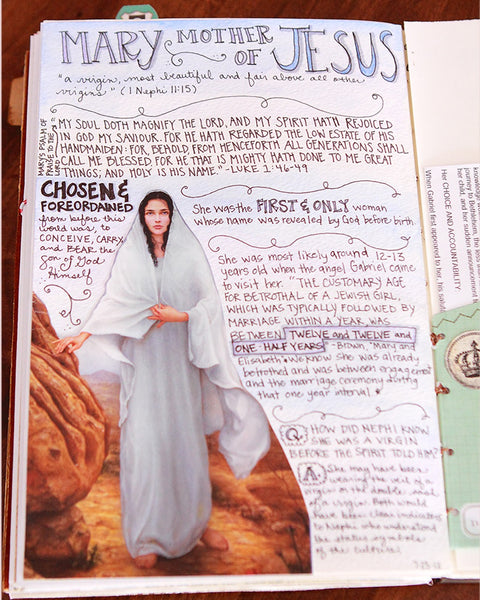 MARY MOTHER OF JESUS
"a virgin, most beautiful and fair above all other
virgins" (1 Nephi 11:15)
MARY'S PSALM OF
PRAISE TO THE
LORD
MY SOUL DOTH MAGNIFY THE LORD, AND MY SPIRIT HATH REJOICED
IN GOD MY SAVIOUR. FOR HE HATH REGARDED THE LOW ESTATE OF HIS
HANDMAIDEN: FOR, BEHOLD, FROM HENCEFORTH ALL GENERATIONS SHALL
CALL ME BLESSED, FOR HE THAT IS MIGHTY HATH DONE TO ME GREAT
THINGS; AND HOLY IS HIS NAME." -LUKE 1:46-49
CHOSEN &
FOREORDAINED
from before this
world was, to
CONCEIVE, CARRY
and BEAR the
son of God
Himself
She was the FIRST & ONLY woman
whose name was revealed by God before birth.
She was most likely around 12-13
years old when the angel Gabriel came
to visit her. "THE CUSTOMARY AGE
FOR BETROTHAL OF A JEWISH GIRL,
WHICH WAS TYPICALLY FOLLOWED BY
MARRIAGE WITHIN A YEAR, WAS
BETWEEN TWELVE and TWELVE and
ONE-HALF YEARS" -Brown, "Mary and
Elisabeth" We know she was already
betrothed and was between engagement
and the marriage ceremony during
that one year interval.
Q. HOW DID NEPHI KNOW
SHE WAS A VIRGIN
BEFORE THE SPIRIT TOLD HIM?
A. She may have been
wearing the veil of a
virgin or the double
of a virgin. Both would
have been clear indicators
to Nephi who understood
the status symbols
of the culture.
7-23-12
knowledge
journey to Bethlehem, the
her child,
and her sudden announcement
Her CHOICE AND ACCOUNTABILITY
When Gabriel first appeared to her, his salut